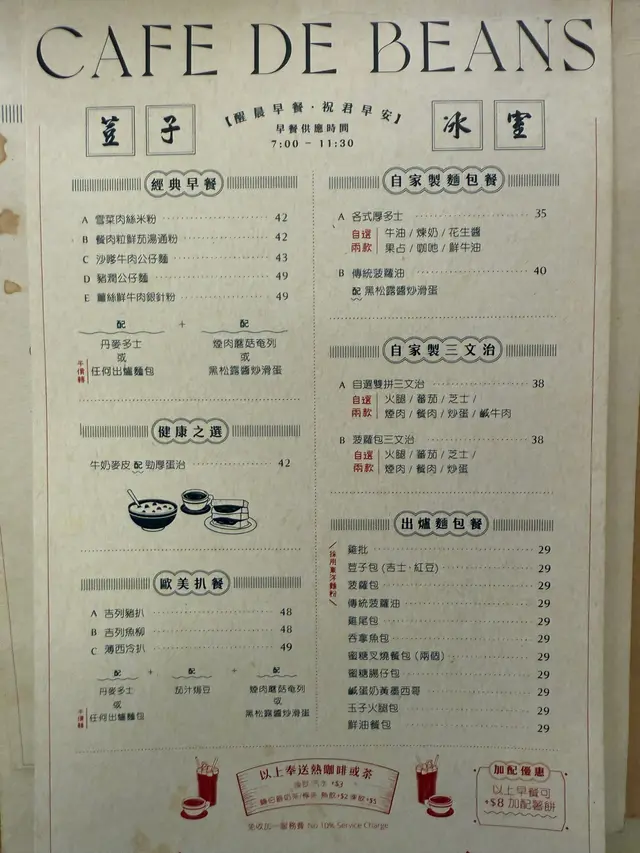 CAFE DE BEANS
荳子
冰室
【醒晨早餐·祝君早安】
早餐供應時間
7:00 - 11:30
經典早餐
A 雪菜肉絲米粉 42
B 餐肉粒鮮茄湯通粉 42
C 沙嗲牛肉公仔麵 43
D 豬潤公仔麵 49
E 薑絲鮮牛肉銀針粉 49
配 + 配
丹麥多士
或
任何出爐麵包
平價轉
煙肉蘑菇奄列
或
黑松露醬炒滑蛋
健康之選
牛奶麥皮 配 勁厚蛋治 42
歐美扒餐
A 吉列豬扒 48
B 吉列魚柳 48
C 薄西冷扒 49
配 + 配 + 配
丹麥多士
或
任何出爐麵包
茄汁焗豆
煙肉蘑菇奄列
或
黑松露醬炒滑蛋
自家製麵包餐
A 各式厚多士 35
自選兩款
牛油 / 煉奶 / 花生醬
果占 / 咖吔 / 鮮牛油
B 傳統菠蘿油 40
配 黑松露醬炒滑蛋
自家製三文治
A 自選雙拼三文治 38
自選兩款
火腿 / 蕃茄 / 芝士 /
煙肉 / 餐肉 / 炒蛋 / 鹹牛肉
B 菠蘿包三文治 38
自選兩款
火腿 / 蕃茄 / 芝士 /
煙肉 / 餐肉 / 炒蛋
出爐麵包餐
雞批 29
荳子包 (吉士·紅豆) 29
菠蘿包 29
傳統菠蘿油 29
雞尾包 29
吞拿魚包 29
蜜糖叉燒餐包 (兩個) 29
蜜糖腸仔包 29
鹹蛋奶黃墨西哥 29
玉子火腿包 29
鮮油餐包 29
以上奉送熱咖啡或茶
+$3
熱飲+$2 凍飲+$5
免收加一服務費 No 10% Service Charge
加配優惠
以上早餐可
+$8 加配薯餅